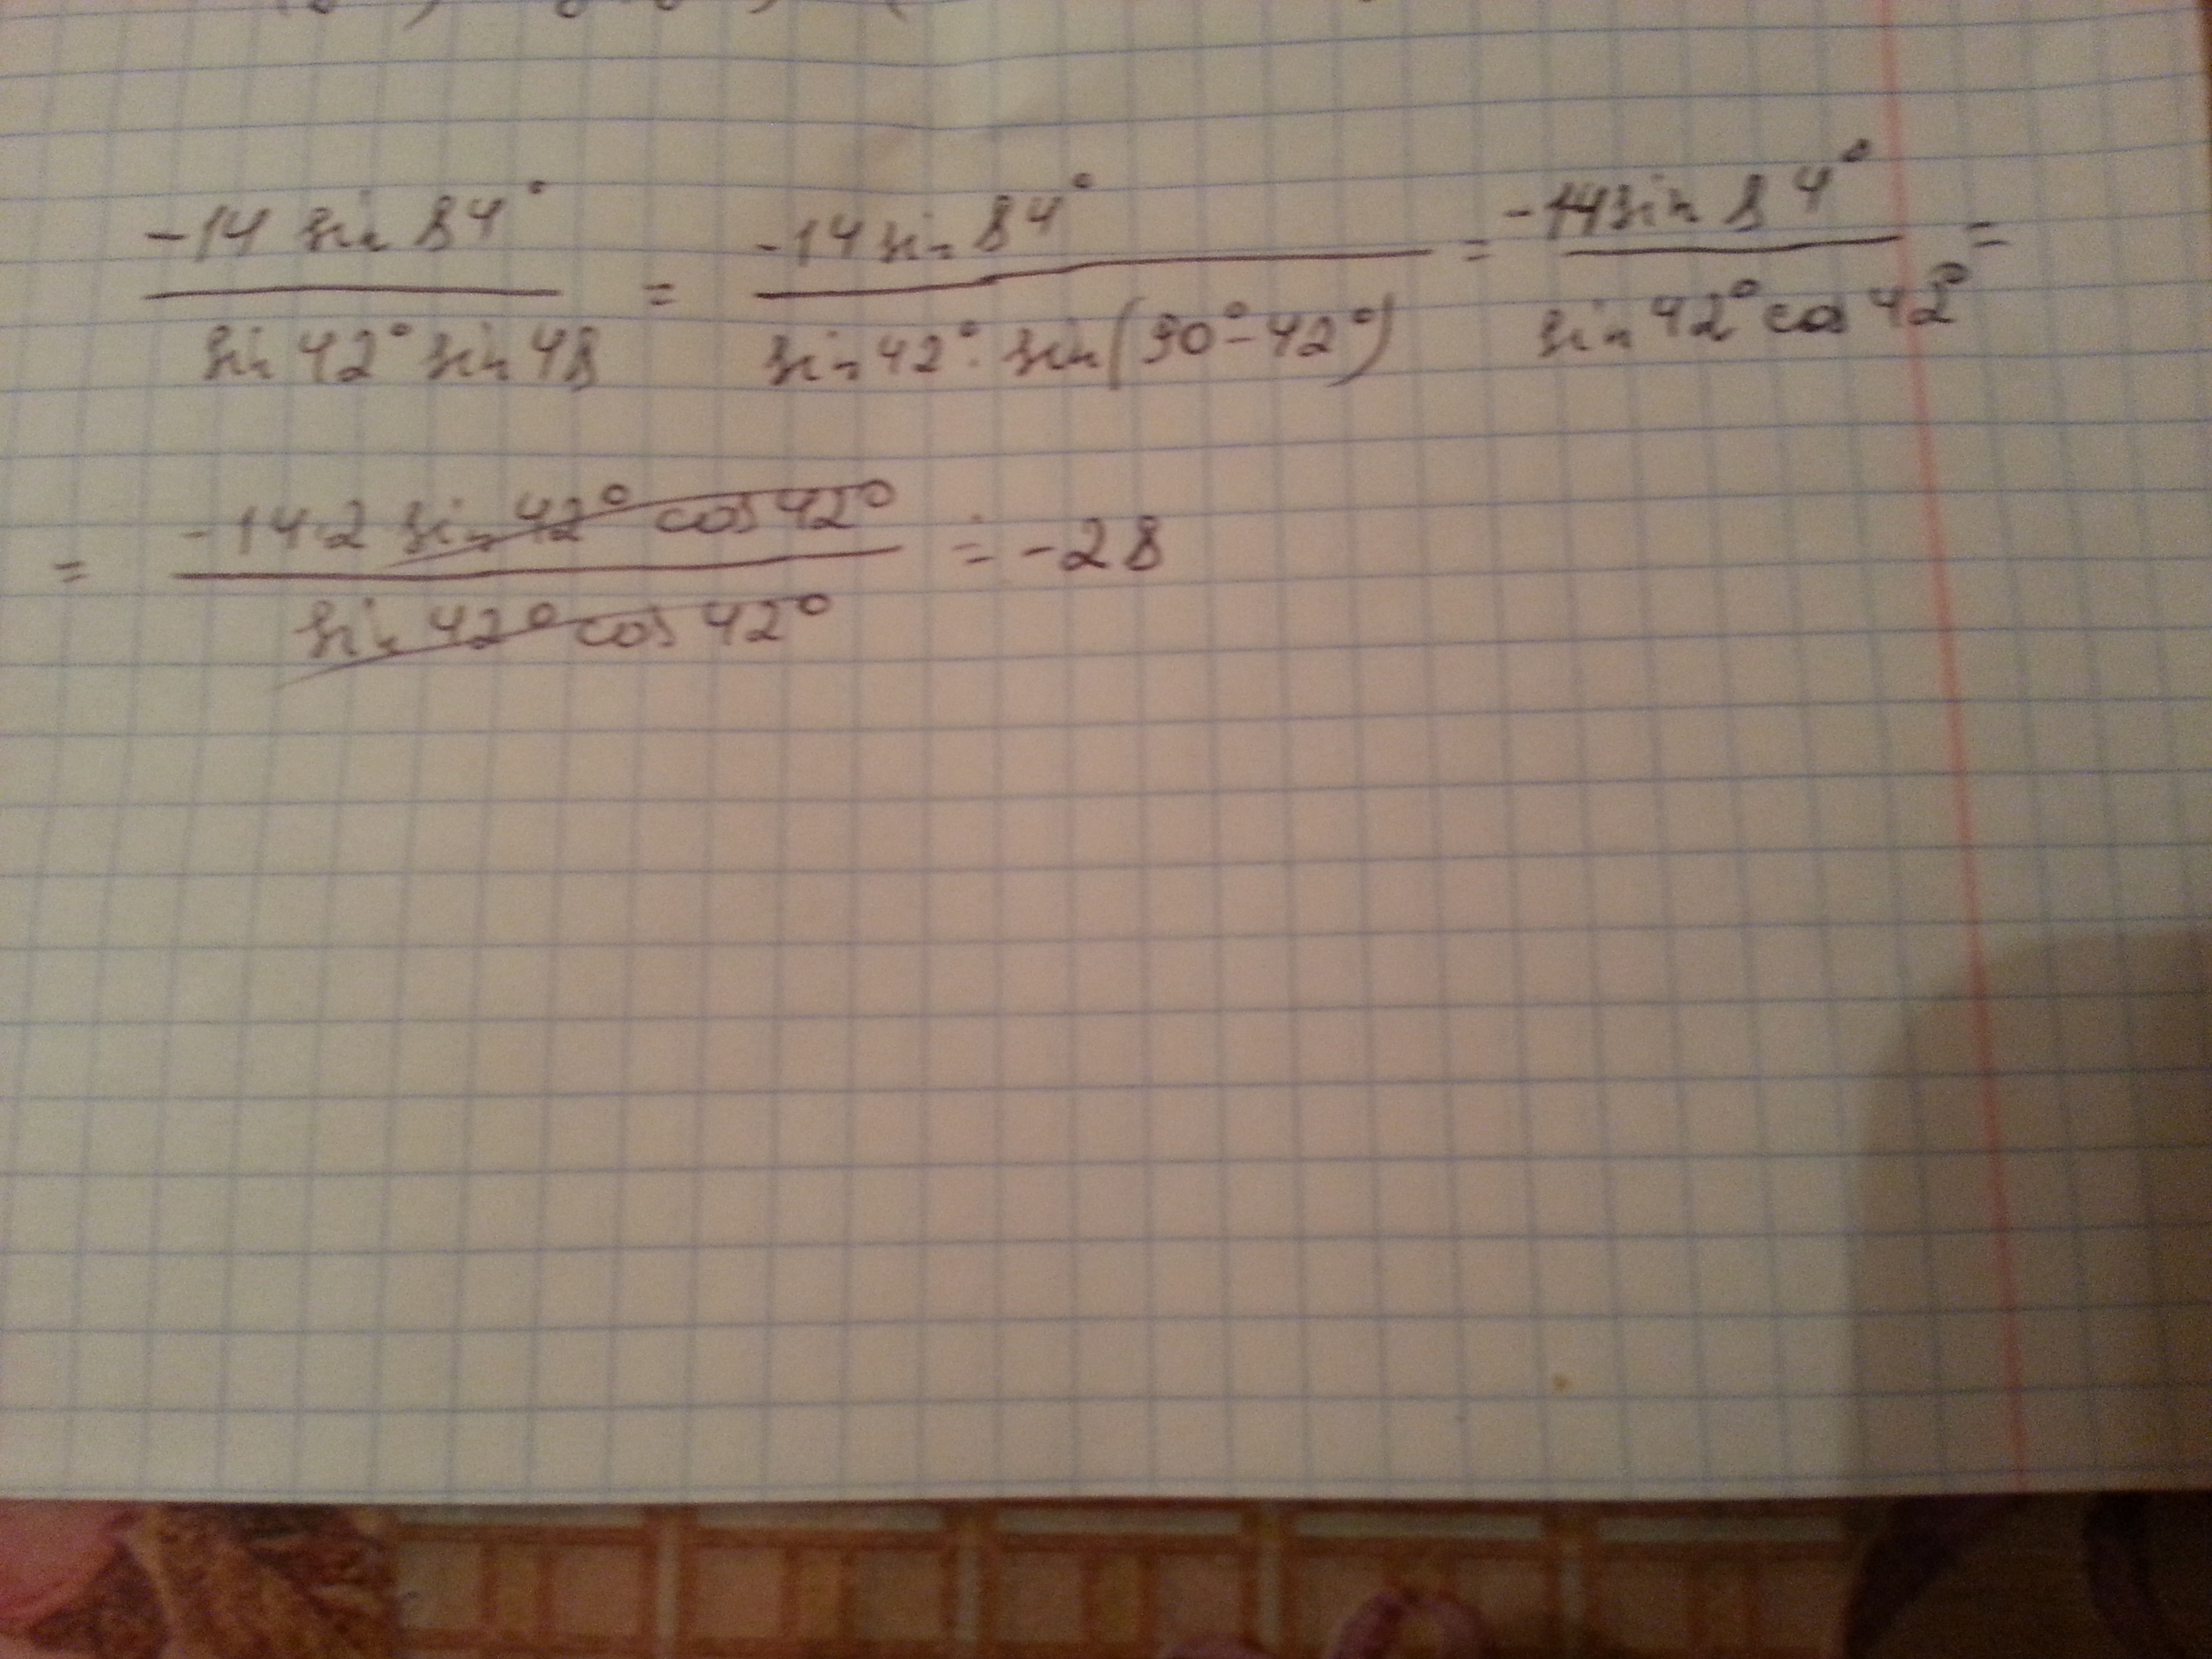 -14 sin 84° / sin 42° sin 48 = -14 sin 84° / sin 42° · sin(90° - 42°) = -14 sin 84° / sin 42° cos 42° =
= -14·2 sin 42° cos 42° / sin 42° cos 42° = -28